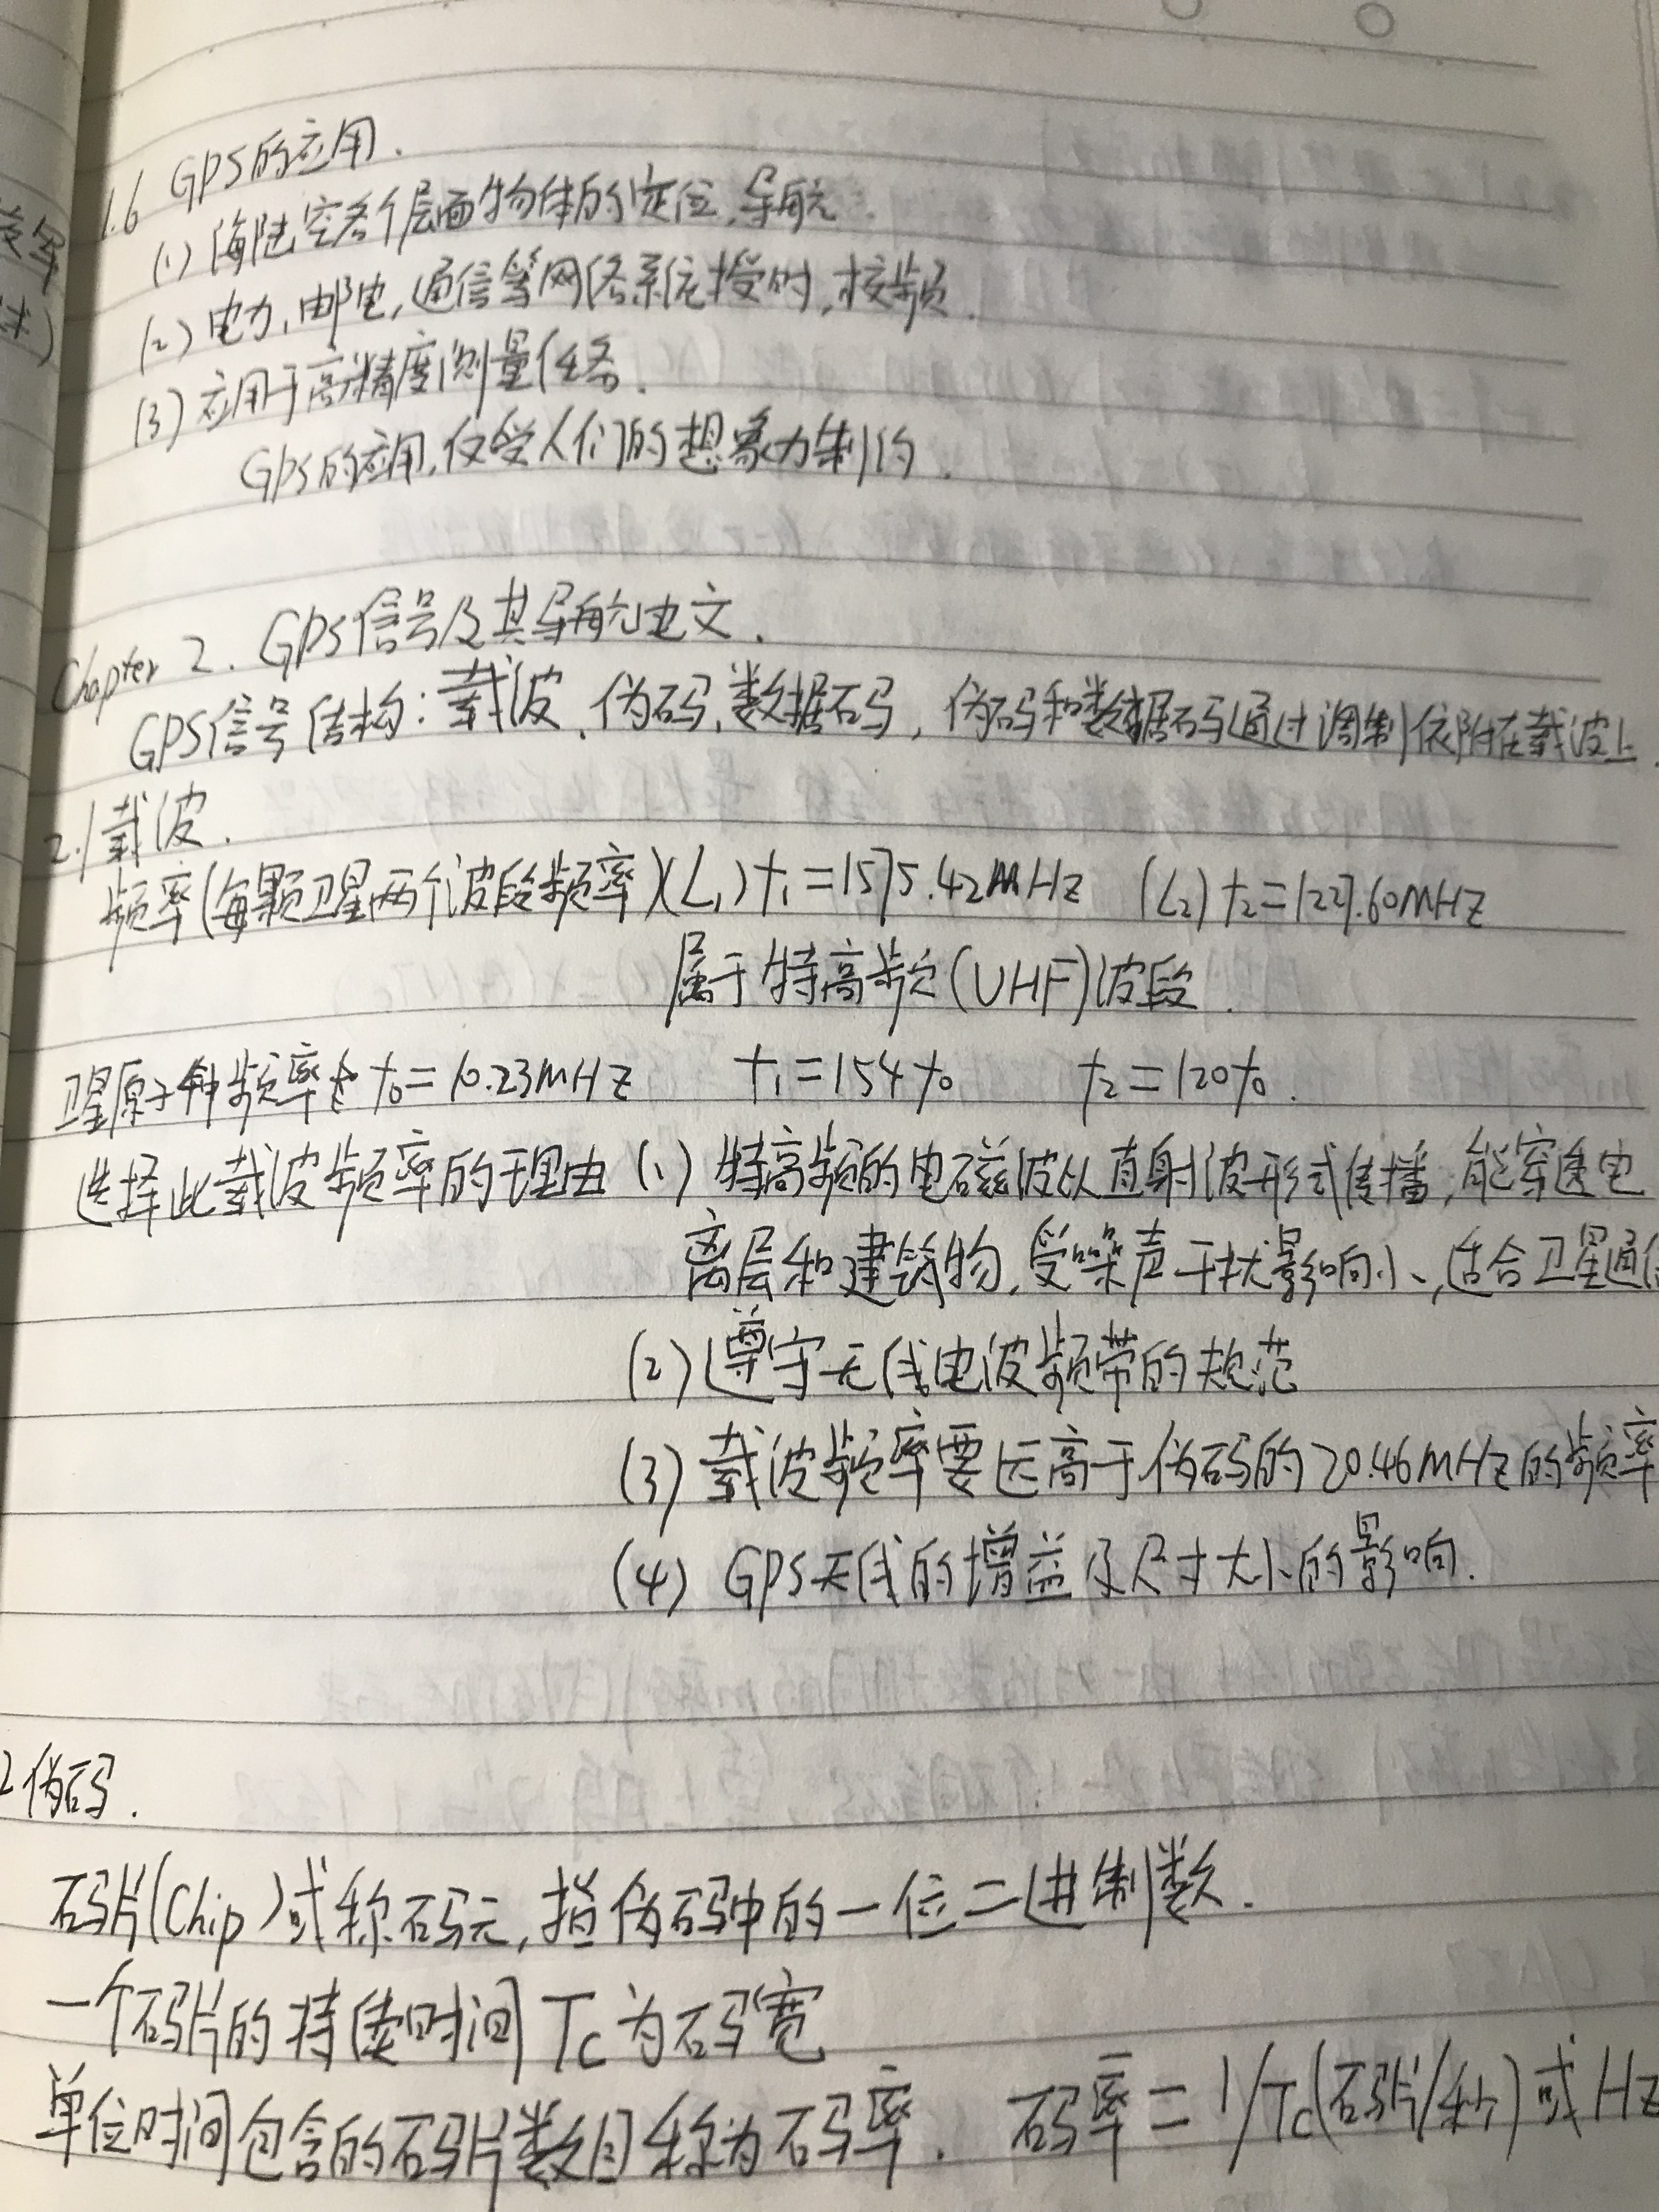 1.6 GPS的应用.
(1) 海陆空各个层面物体的定位,导航.
(2) 电力,邮电,通信等网络系统授时,校频.
(3) 应用于高精度测量任务.
GPS的应用,仅受人们的想象力制约.
Chapter 2. GPS信号及其导航电文.
GPS信号结构:载波、伪码,数据码,伪码和数据码通过调制依附在载波上.
2.1载波.
频率(每颗卫星两个波段频率)(L₁) f₁=1575.42MHz (L₂) f₂=1227.60MHz
属于特高频(UHF)波段.
卫星原子钟频率 f₀=10.23MHz f₁=154f₀ f₂=120f₀.
选择此载波频率的理由 (1) 特高频的电磁波以直射波形式传播,能穿透电
离层和建筑物,受噪声干扰影响小,适合卫星通信
(2) 遵守无线电波频带的规范
(3) 载波频率要远高于伪码的20.46MHz的频率
(4) GPS天线的增益及尺寸大小的影响.
2伪码.
码片(Chip)或称码元,指伪码中的一位二进制数.
一个码片的持续时间Tc为码宽
单位时间包含的码片数目称为码率. 码率=1/Tc(码片/秒)或Hz